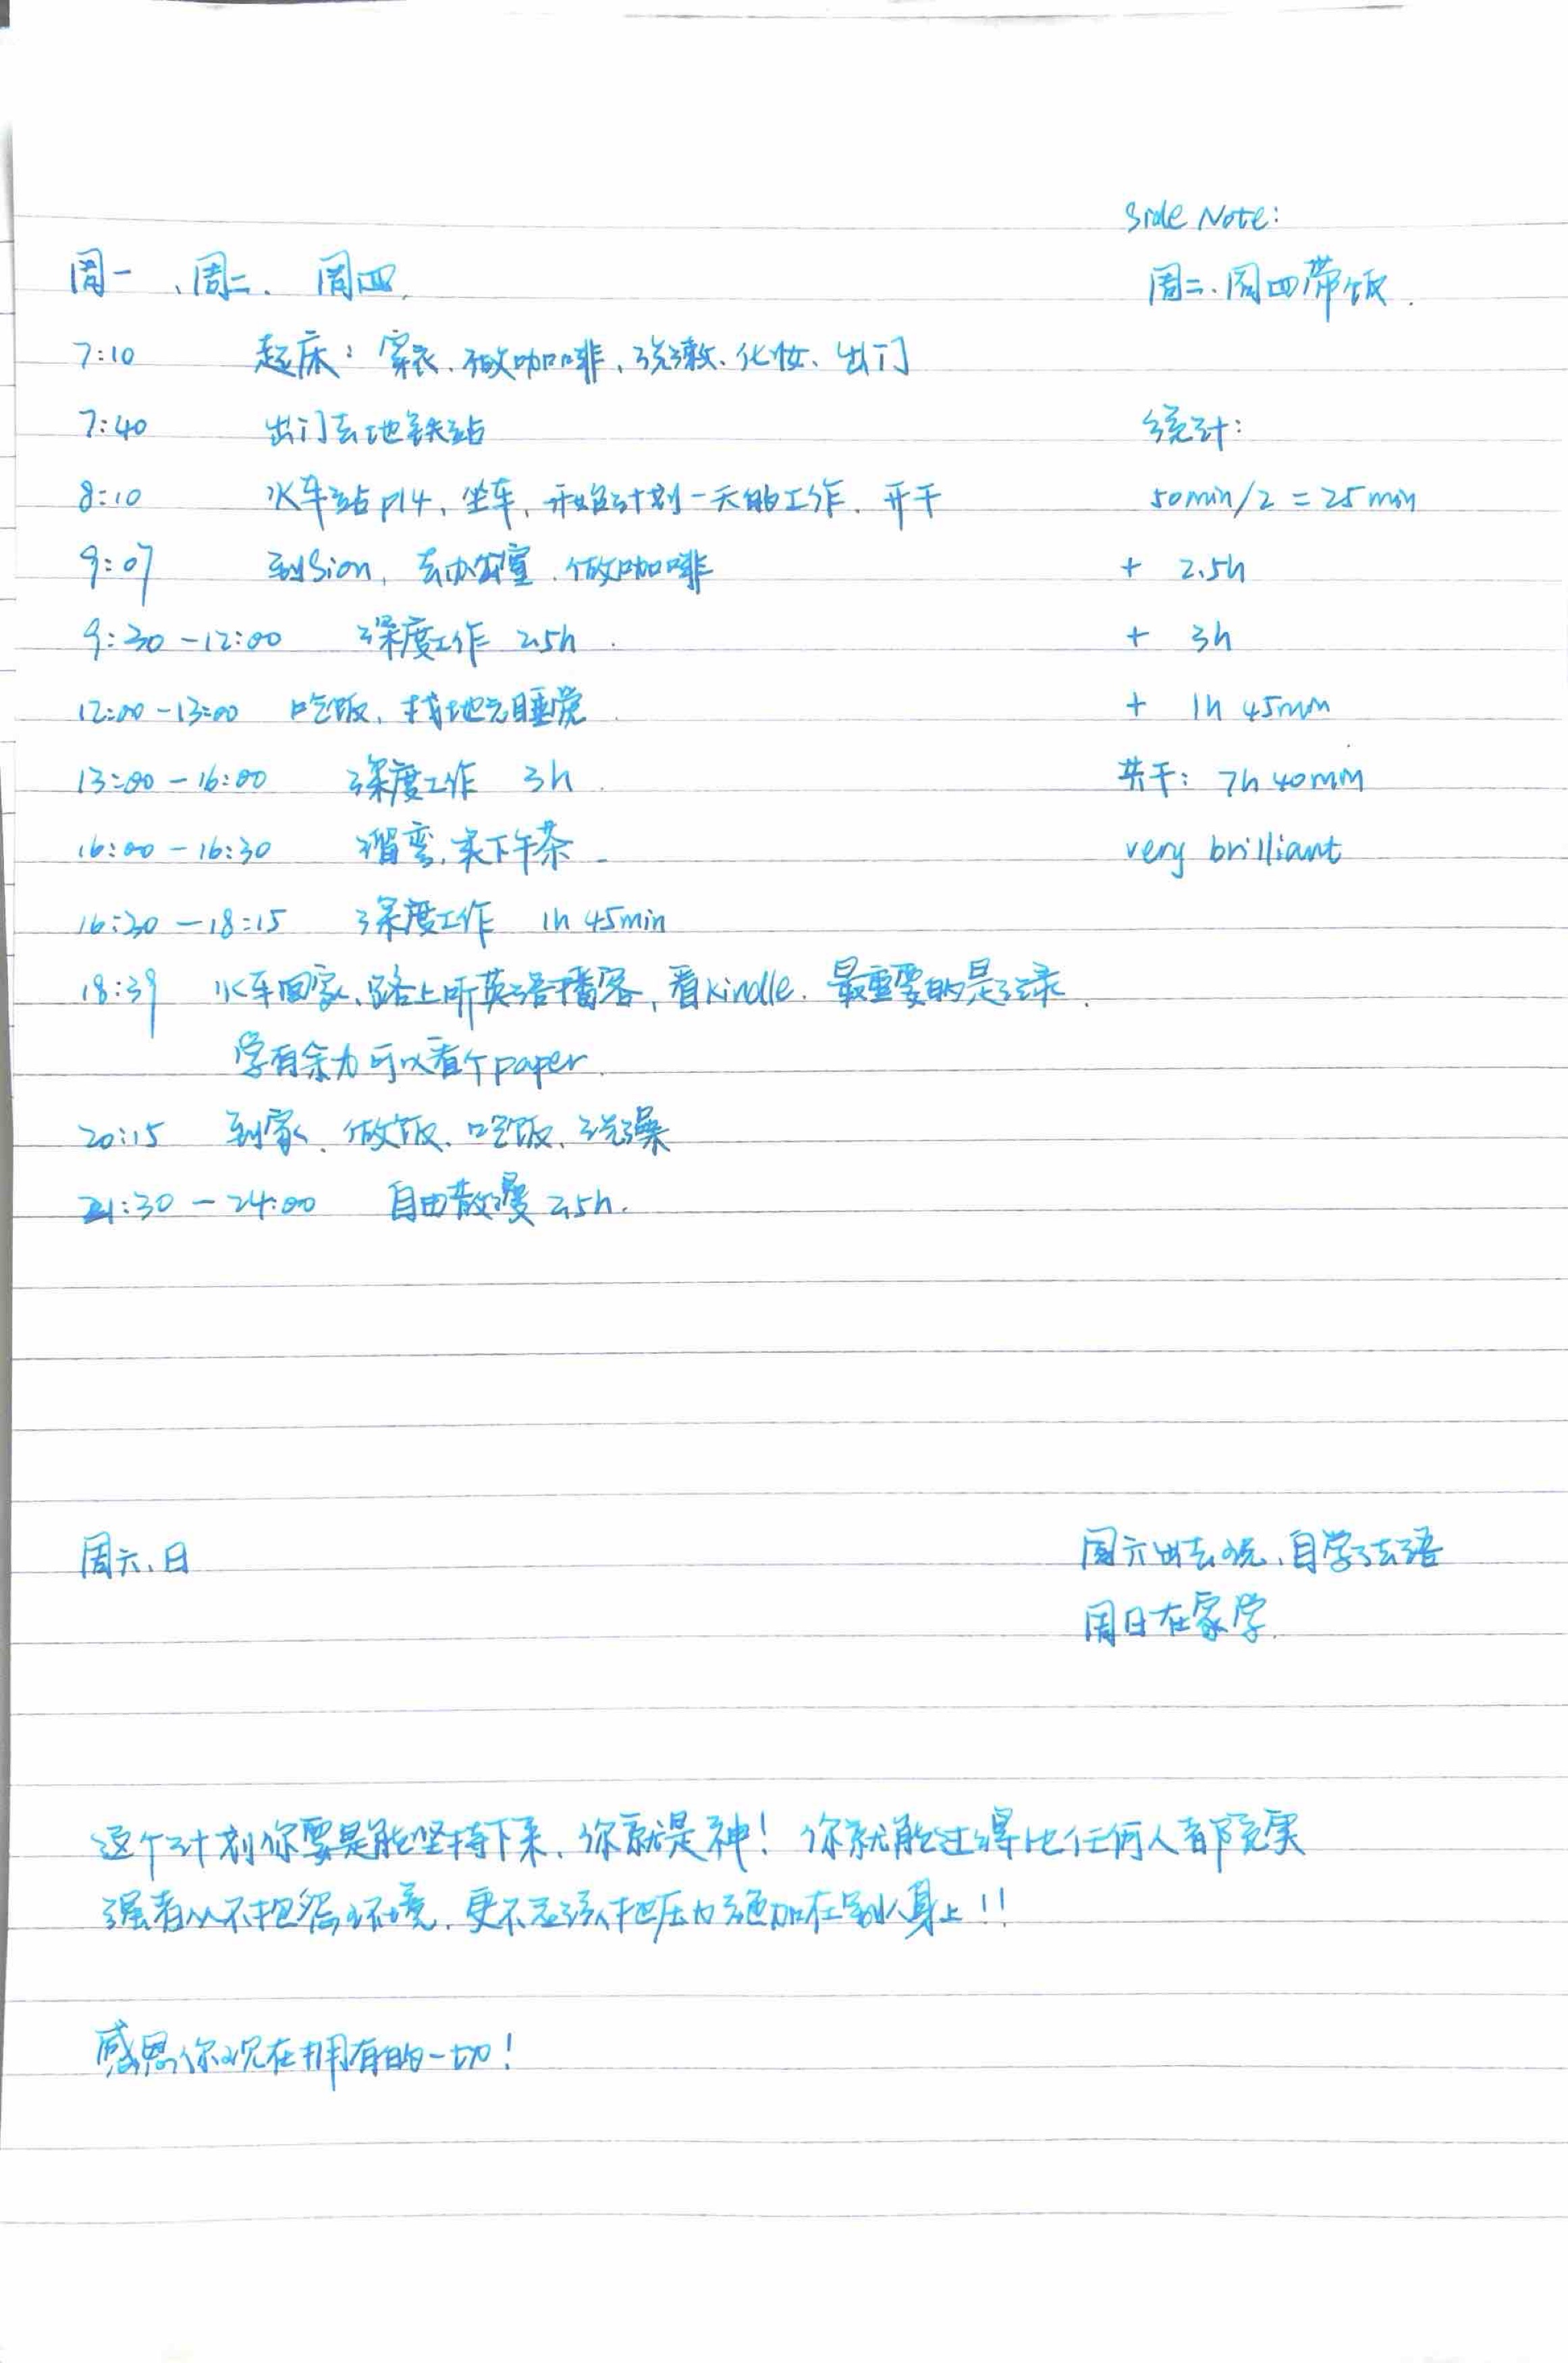 Side Note:
周一、周二、周四
周二、周四带饭.
7:10 起床：穿衣、做咖啡、洗漱、化妆、出门
7:40 出门去地铁站
统计：
8:10 火车站 p14，坐车，开始计划一天的工作、开干
50min/2 = 25min
9:07 到Sion，去办公室、做咖啡
+ 2.5h
9:30 - 12:00 深度工作 2.5h
+ 3h
12:00 - 13:00 吃饭、找地方睡觉
+ 1h 45min
13:00 - 16:00 深度工作 3h
共干: 7h 40min
16:00 - 16:30 溜弯，来下午茶
very brilliant
16:30 - 18:15 深度工作 1h 45min
18:39 火车回家、路上听英语播客，看kindle. 最重要的是
学有余力可以看个paper.
20:15 到家、做饭、吃饭、洗澡
21:30 - 24:00 自由散漫 2.5h.
周六、日
周六出去玩、自学法语
周日在家学.
这个计划你要是能坚持下来，你就是神！你就能过得比任何人都充实
强者从不抱怨环境，更不应该把压力施加在别人身上!!
感恩你现在拥有的一切！